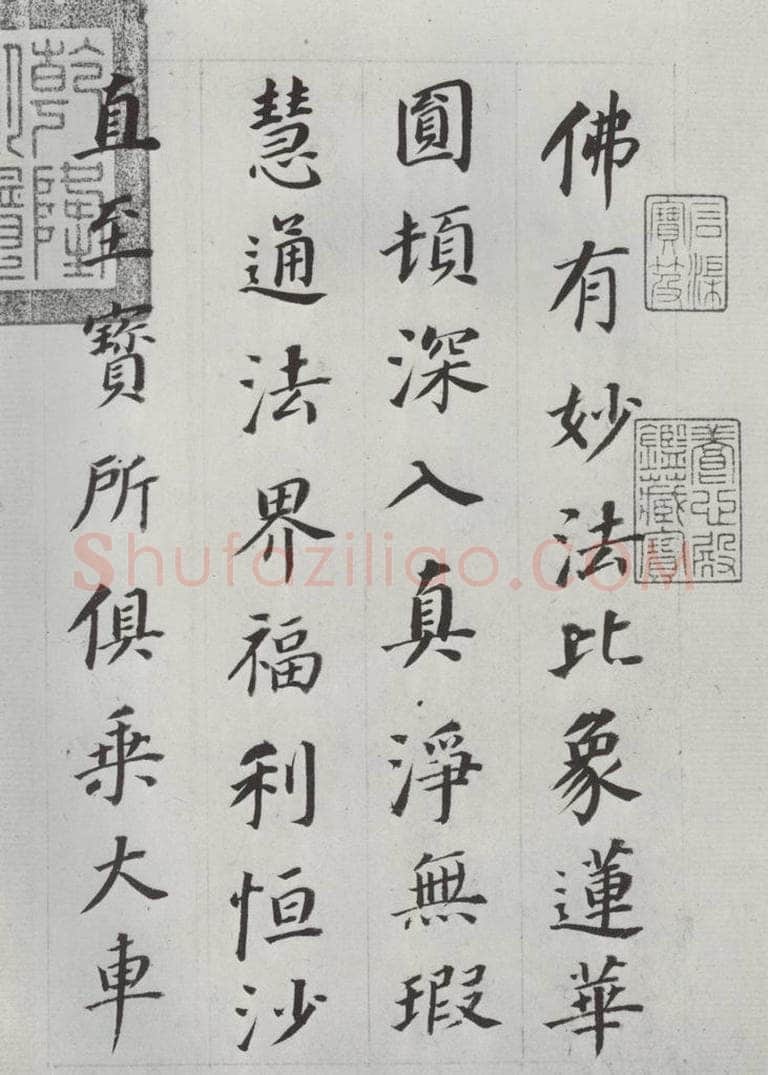 佛有妙法比象蓮華
圓頓深入真淨無瑕
慧通法界福利恒沙
直至寶所俱乗大車
石渠寶笈
養心殿鑑藏寶
乾隆
Shufaziliao.COM